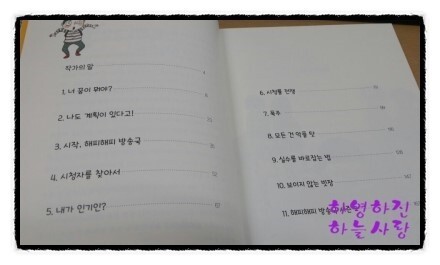 작가의 말
1. 너 꿈이 뭐야?
2. 나도 계획이 있다고!
3. 시작, 해피해피 방송국
4. 시청자를 찾아서
5. 내가 인기인?
6. 시청률 전쟁
7. 폭주
8. 모든 건 악플 탓
9. 실수를 바로잡는 법
10. 보이지 않는 빙장
11. 해피해피 방송
하영하진
하늘사랑